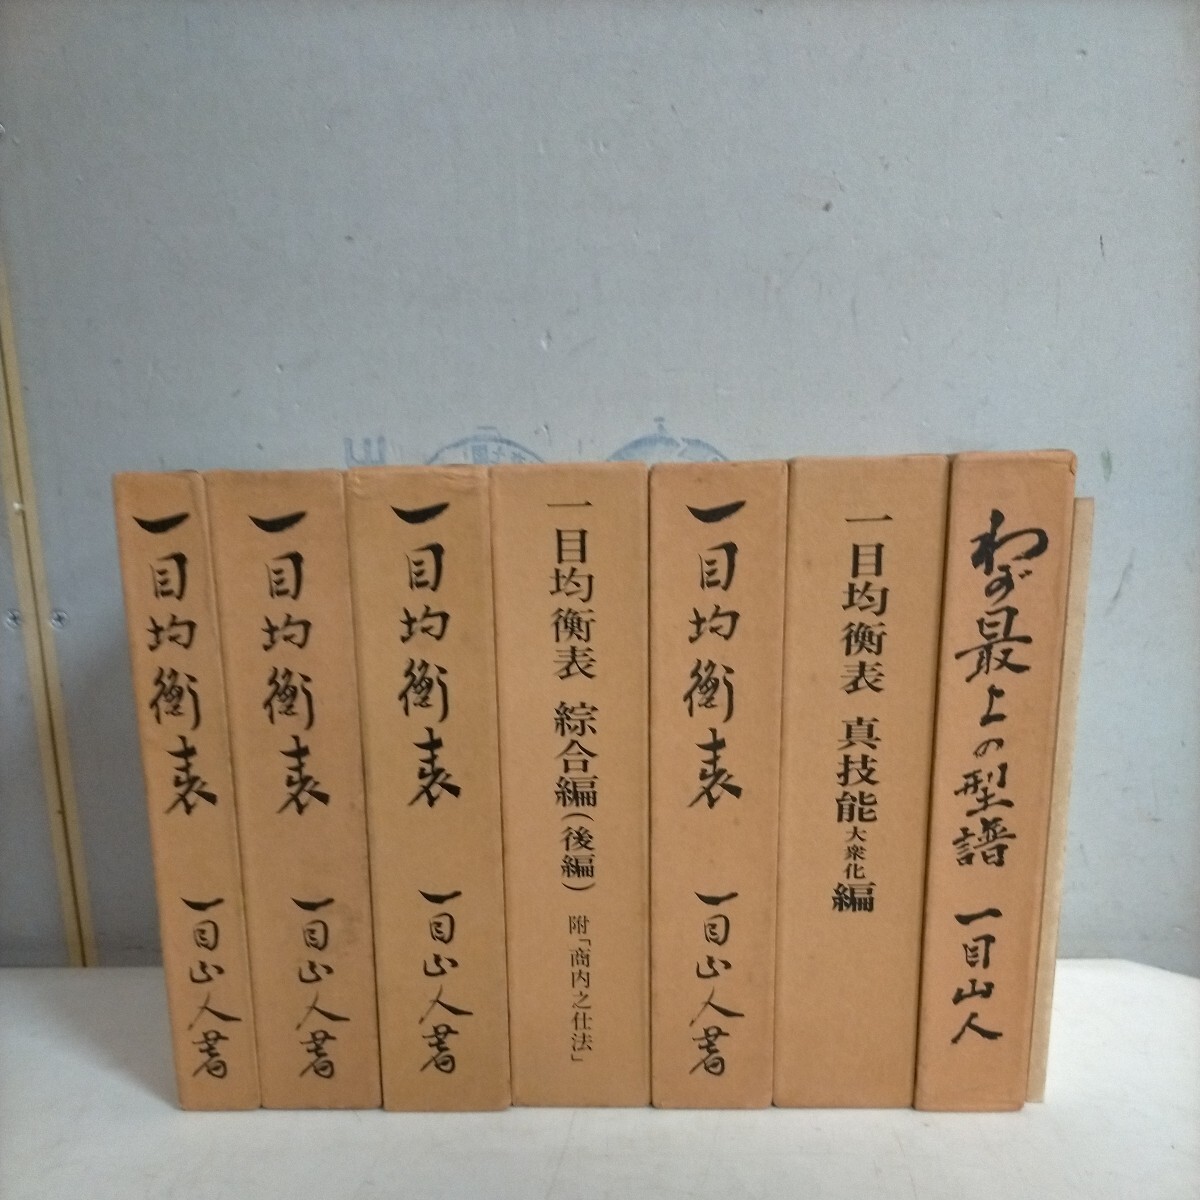 一目均衡表 一目山人著
一目均衡表 一目山人著
一目均衡表 一目山人著
一目均衡表 綜合編(後編) 附「商内之仕法」
一目均衡表 一目山人著
一目均衡表 真技能大衆化編
わが最上の型譜 一目山人